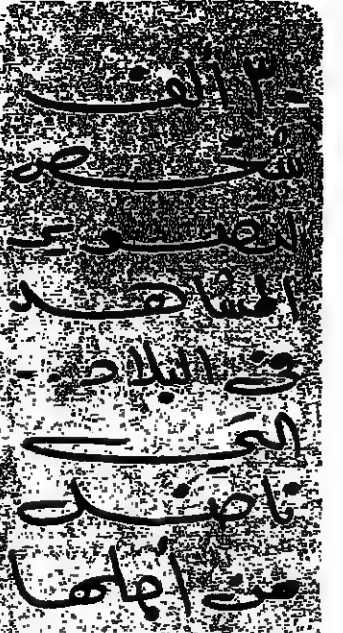 ٣٠ ألف
شخص
المشاهد
في البلاد ..
التي
ناضلت
من أجلها